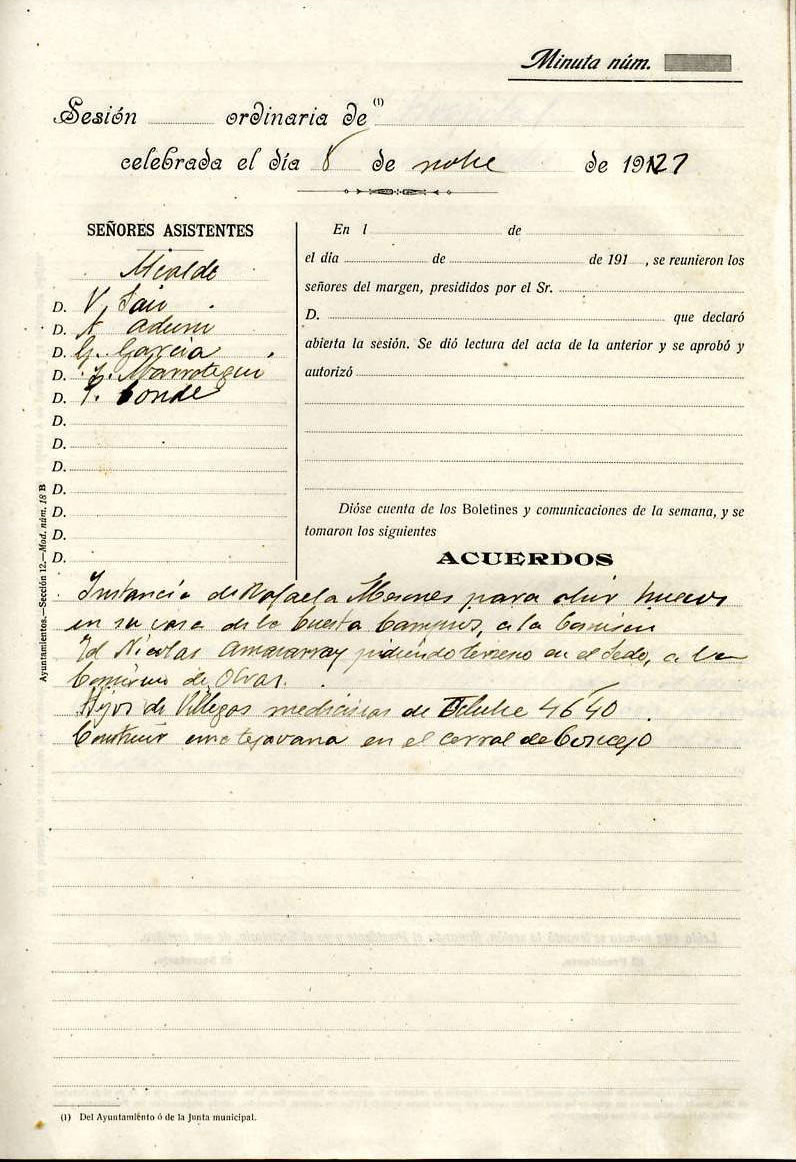 Minuta núm.
Sesión ordinaria de (1)
celebrada el día 8 de nobe de 1927
SEÑORES ASISTENTES
Alcalde
D. V. Saiz
D. A. Aduni
D. G. García
D. Marrotegui
D. P. Conde
D.
D.
D.
D.
D.
D.
D.
En l de
el día de de 191 , se reunieron los
señores del margen, presididos por el Sr.
D. que declaró
abierta la sesión. Se dió lectura del acta de la anterior y se aprobó y
autorizó
Dióse cuenta de los Boletines y comunicaciones de la semana, y se
tomaron los siguientes
ACUERDOS
Instancia de Rafaela Mesones para abrir huecos
en su casa de la Cuesta Campus, a la Comisión
Id Nicolas Amararray pidiendo terreno en el Sedo, a la
Comision de Obras.
Hijos de Villegas medicinas de Octubre 46'40
Construir una tejavana en el corral de Concejo
Ayuntamientos.—Sección 12.—Mod. núm. 18 B
(1) Del Ayuntamiento ó de la Junta municipal.